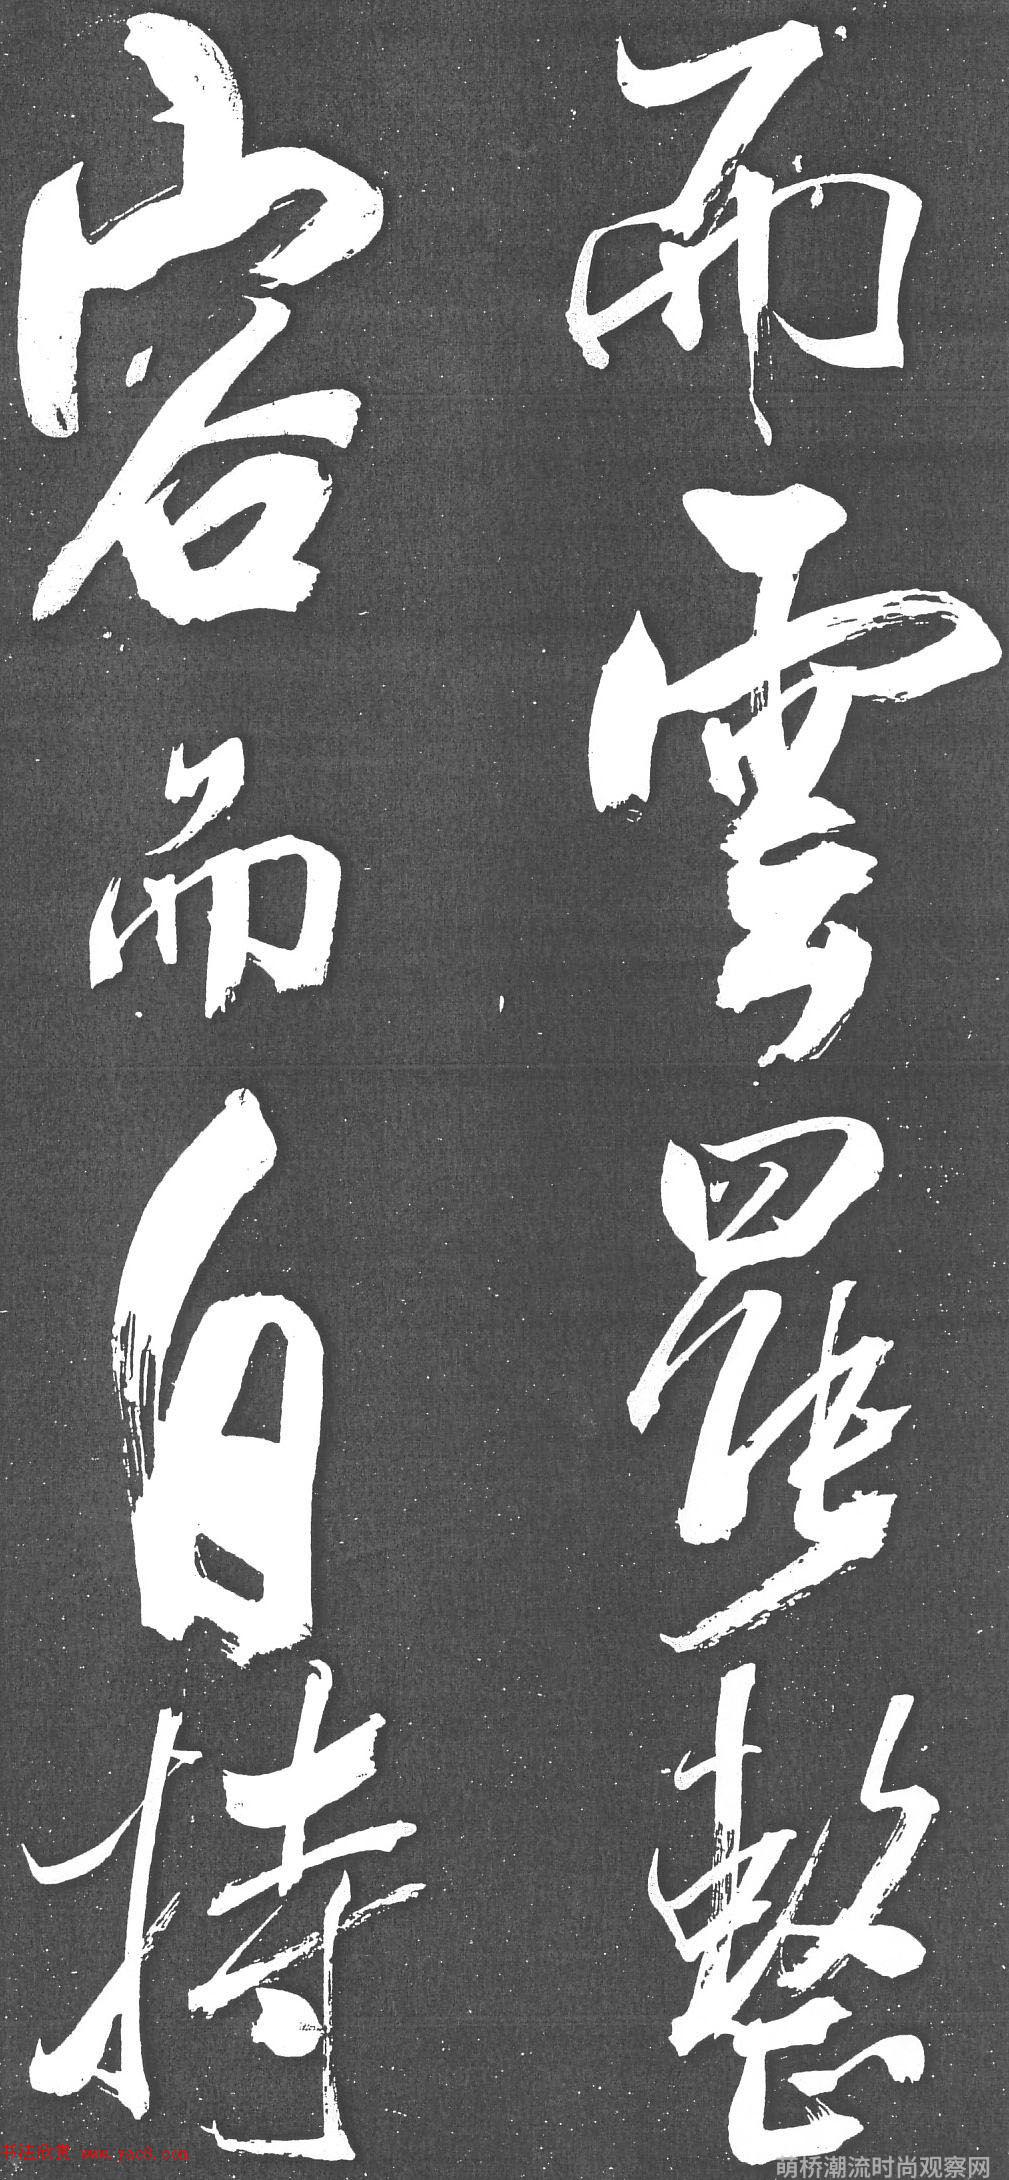 而雲罷整
容而自持
书法欣赏 www.yac8.com
萌桥潮流时尚观察网